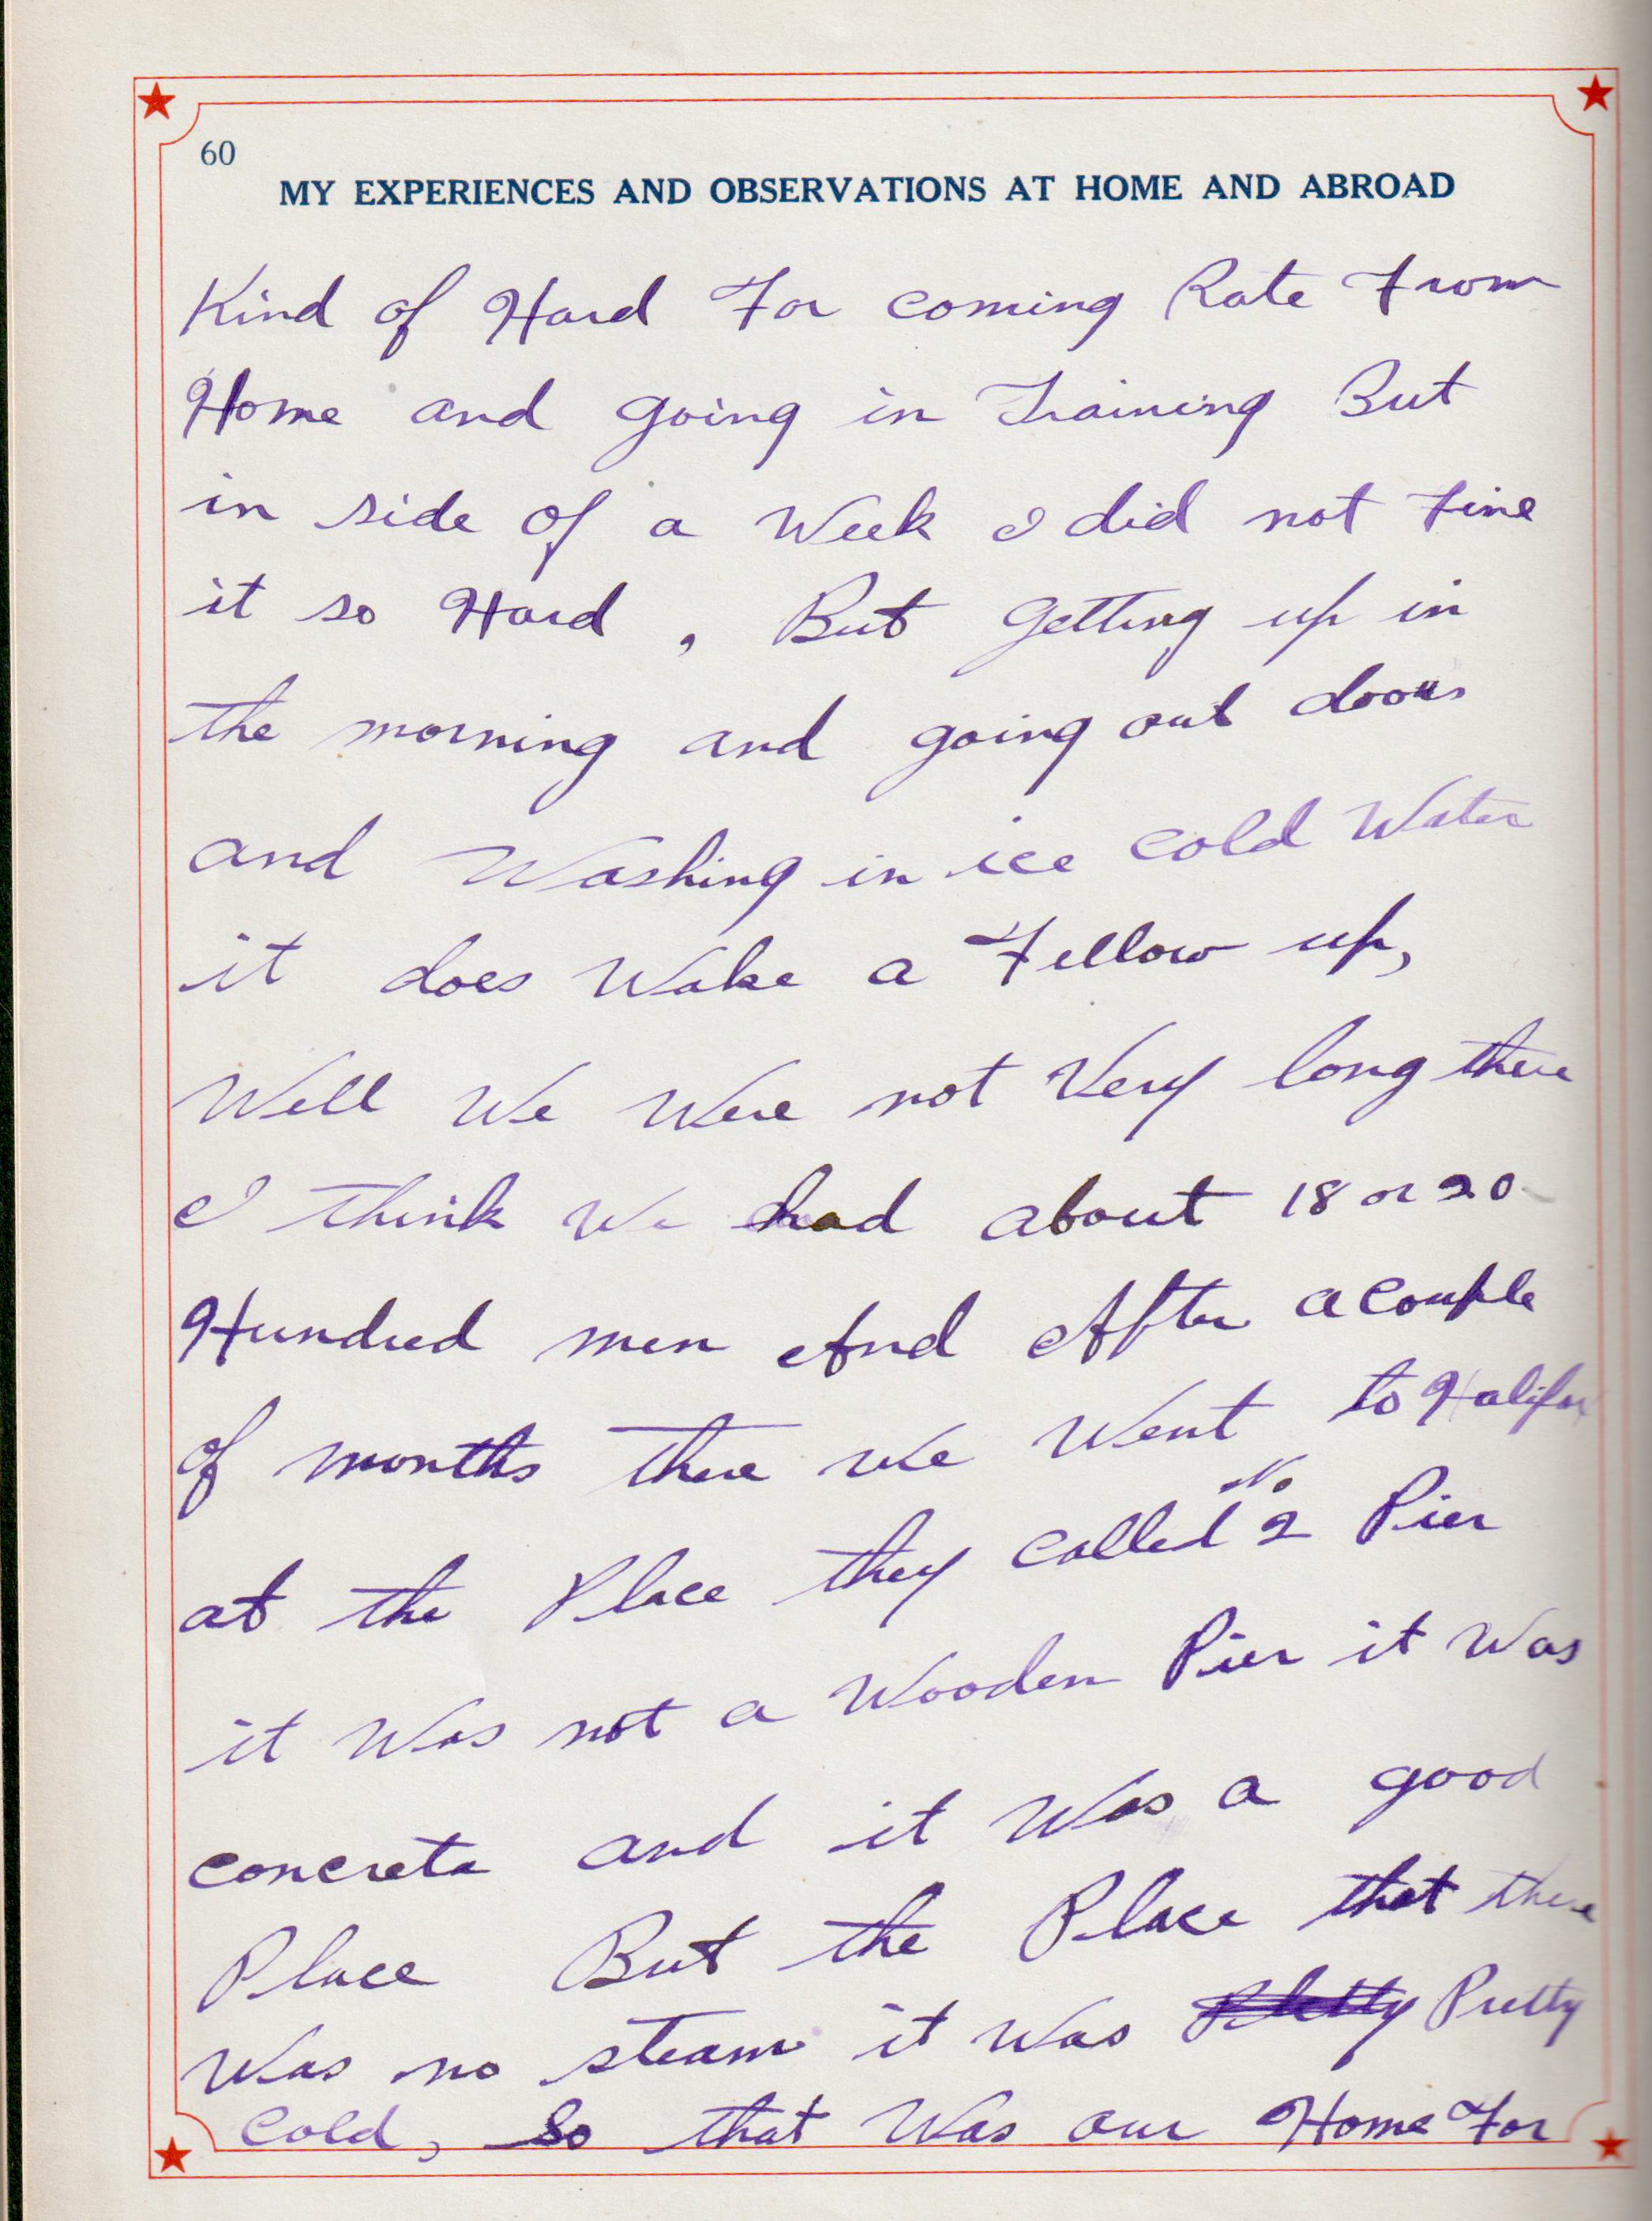 60
MY EXPERIENCES AND OBSERVATIONS AT HOME AND ABROAD
Kind of Hard For coming Rate From
Home and going in Training But
in side of a Week I did not Fine
it so Hard , But Getting up in
the morning and going out doors
and Washing in ice cold Water
it does Wake a Fellow up,
Well We Were not Very long there
I think We had about 18 or 20
Hundred men And After a couple
of months there We Went to Halifax
at the Place they called No 2 Pier
it Was not a Wooden Pier it Was
concrete and it Was a good
Place But the Place that there
Was no steam it Was Pretty
Cold, So that Was our Home For